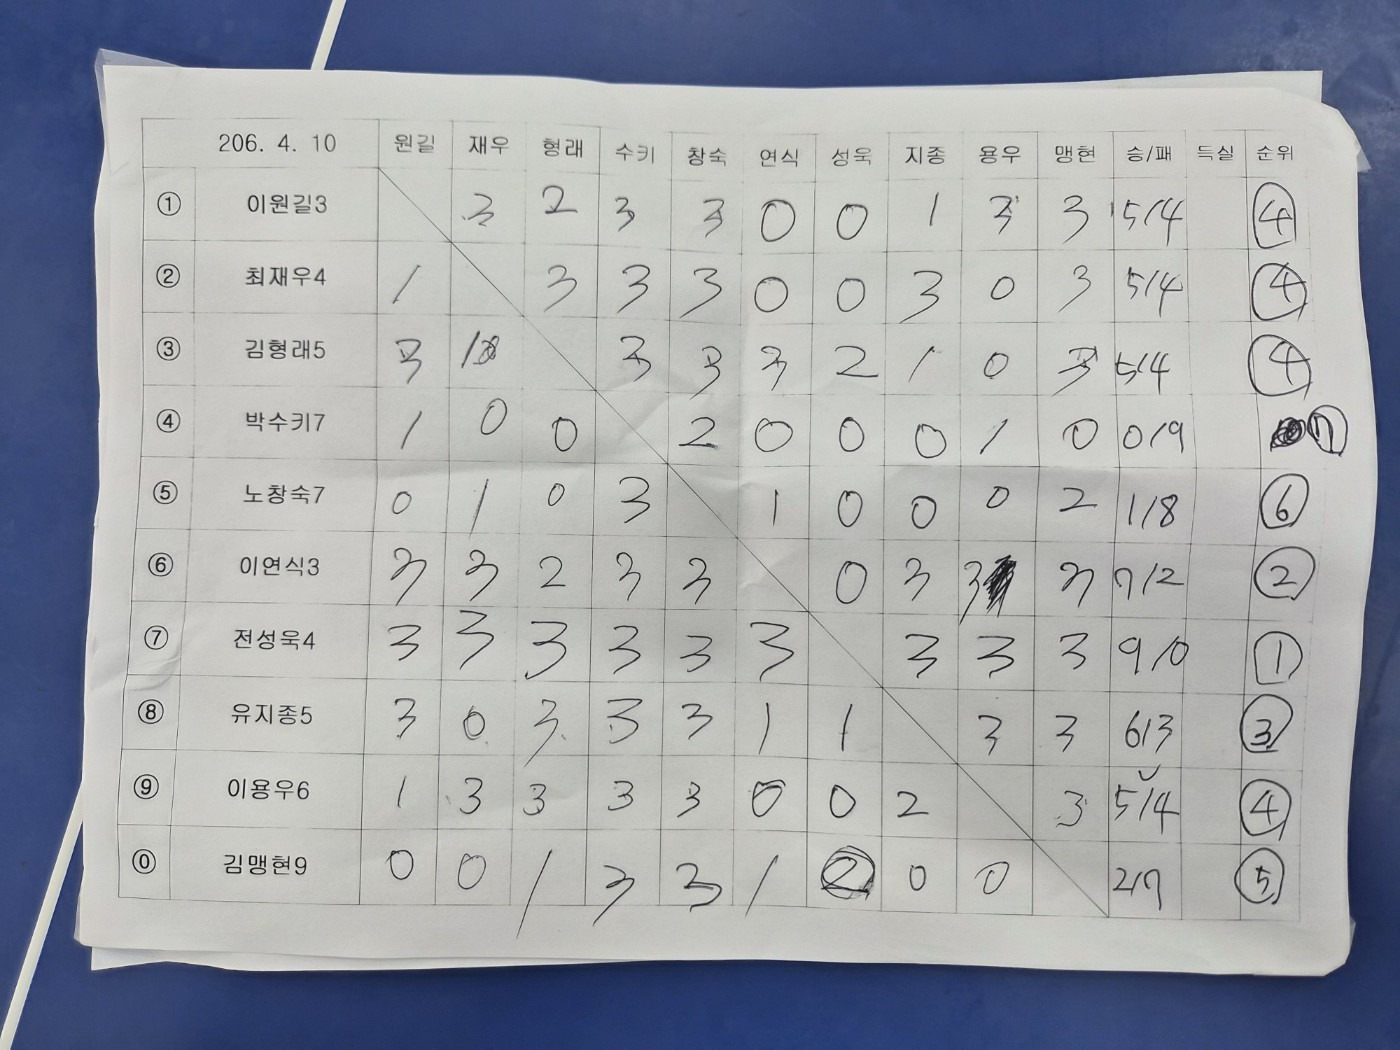 206. 4. 10 원길 재우 형래 수키 창숙 연식 성욱 지종 용우 맹현 승/패 득실 순위
① 이원길3 3 2 3 3 0 0 1 3 3 5/4 ④
② 최재우4 1 3 3 3 0 0 3 0 3 5/4 ④
③ 김형래5 3 1 3 3 3 2 1 0 3 5/4 ④
④ 박수키7 1 0 0 2 0 0 0 1 0 0/9 ⑦
⑤ 노창숙7 0 1 0 3 1 0 0 0 2 1/8 ⑥
⑥ 이연식3 3 3 2 3 3 0 3 3 3 7/2 ②
⑦ 전성욱4 3 3 3 3 3 3 3 3 3 9/0 ①
⑧ 유지종5 3 0 3 3 3 1 1 3 3 6/3 ③
⑨ 이용우6 1 3 3 3 3 0 0 2 3 5/4 ④
⓪ 김맹현9 0 0 1 3 3 1 2 0 0 2/7 ⑤